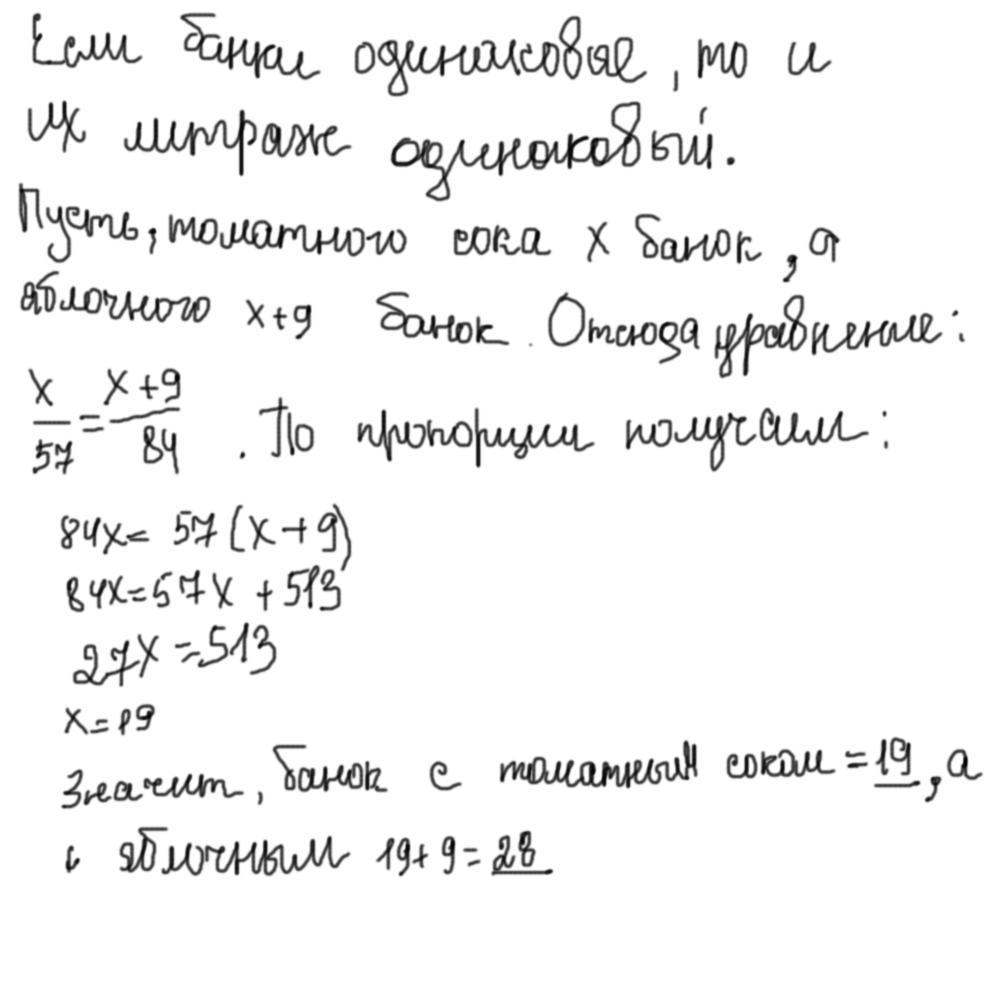 Если банки одинаковые, то и
их литраж одинаковый.
Пусть, томатного сока x банок, а
яблочного x+9 банок. Отсюда уравнение:
x/57 = x+9/84 . По пропорции получаем:
84x= 57(x+9)
84x=57x+513
27x=513
x=19
Значит, банок с томатным соком =19, а
с яблочным 19+9=28